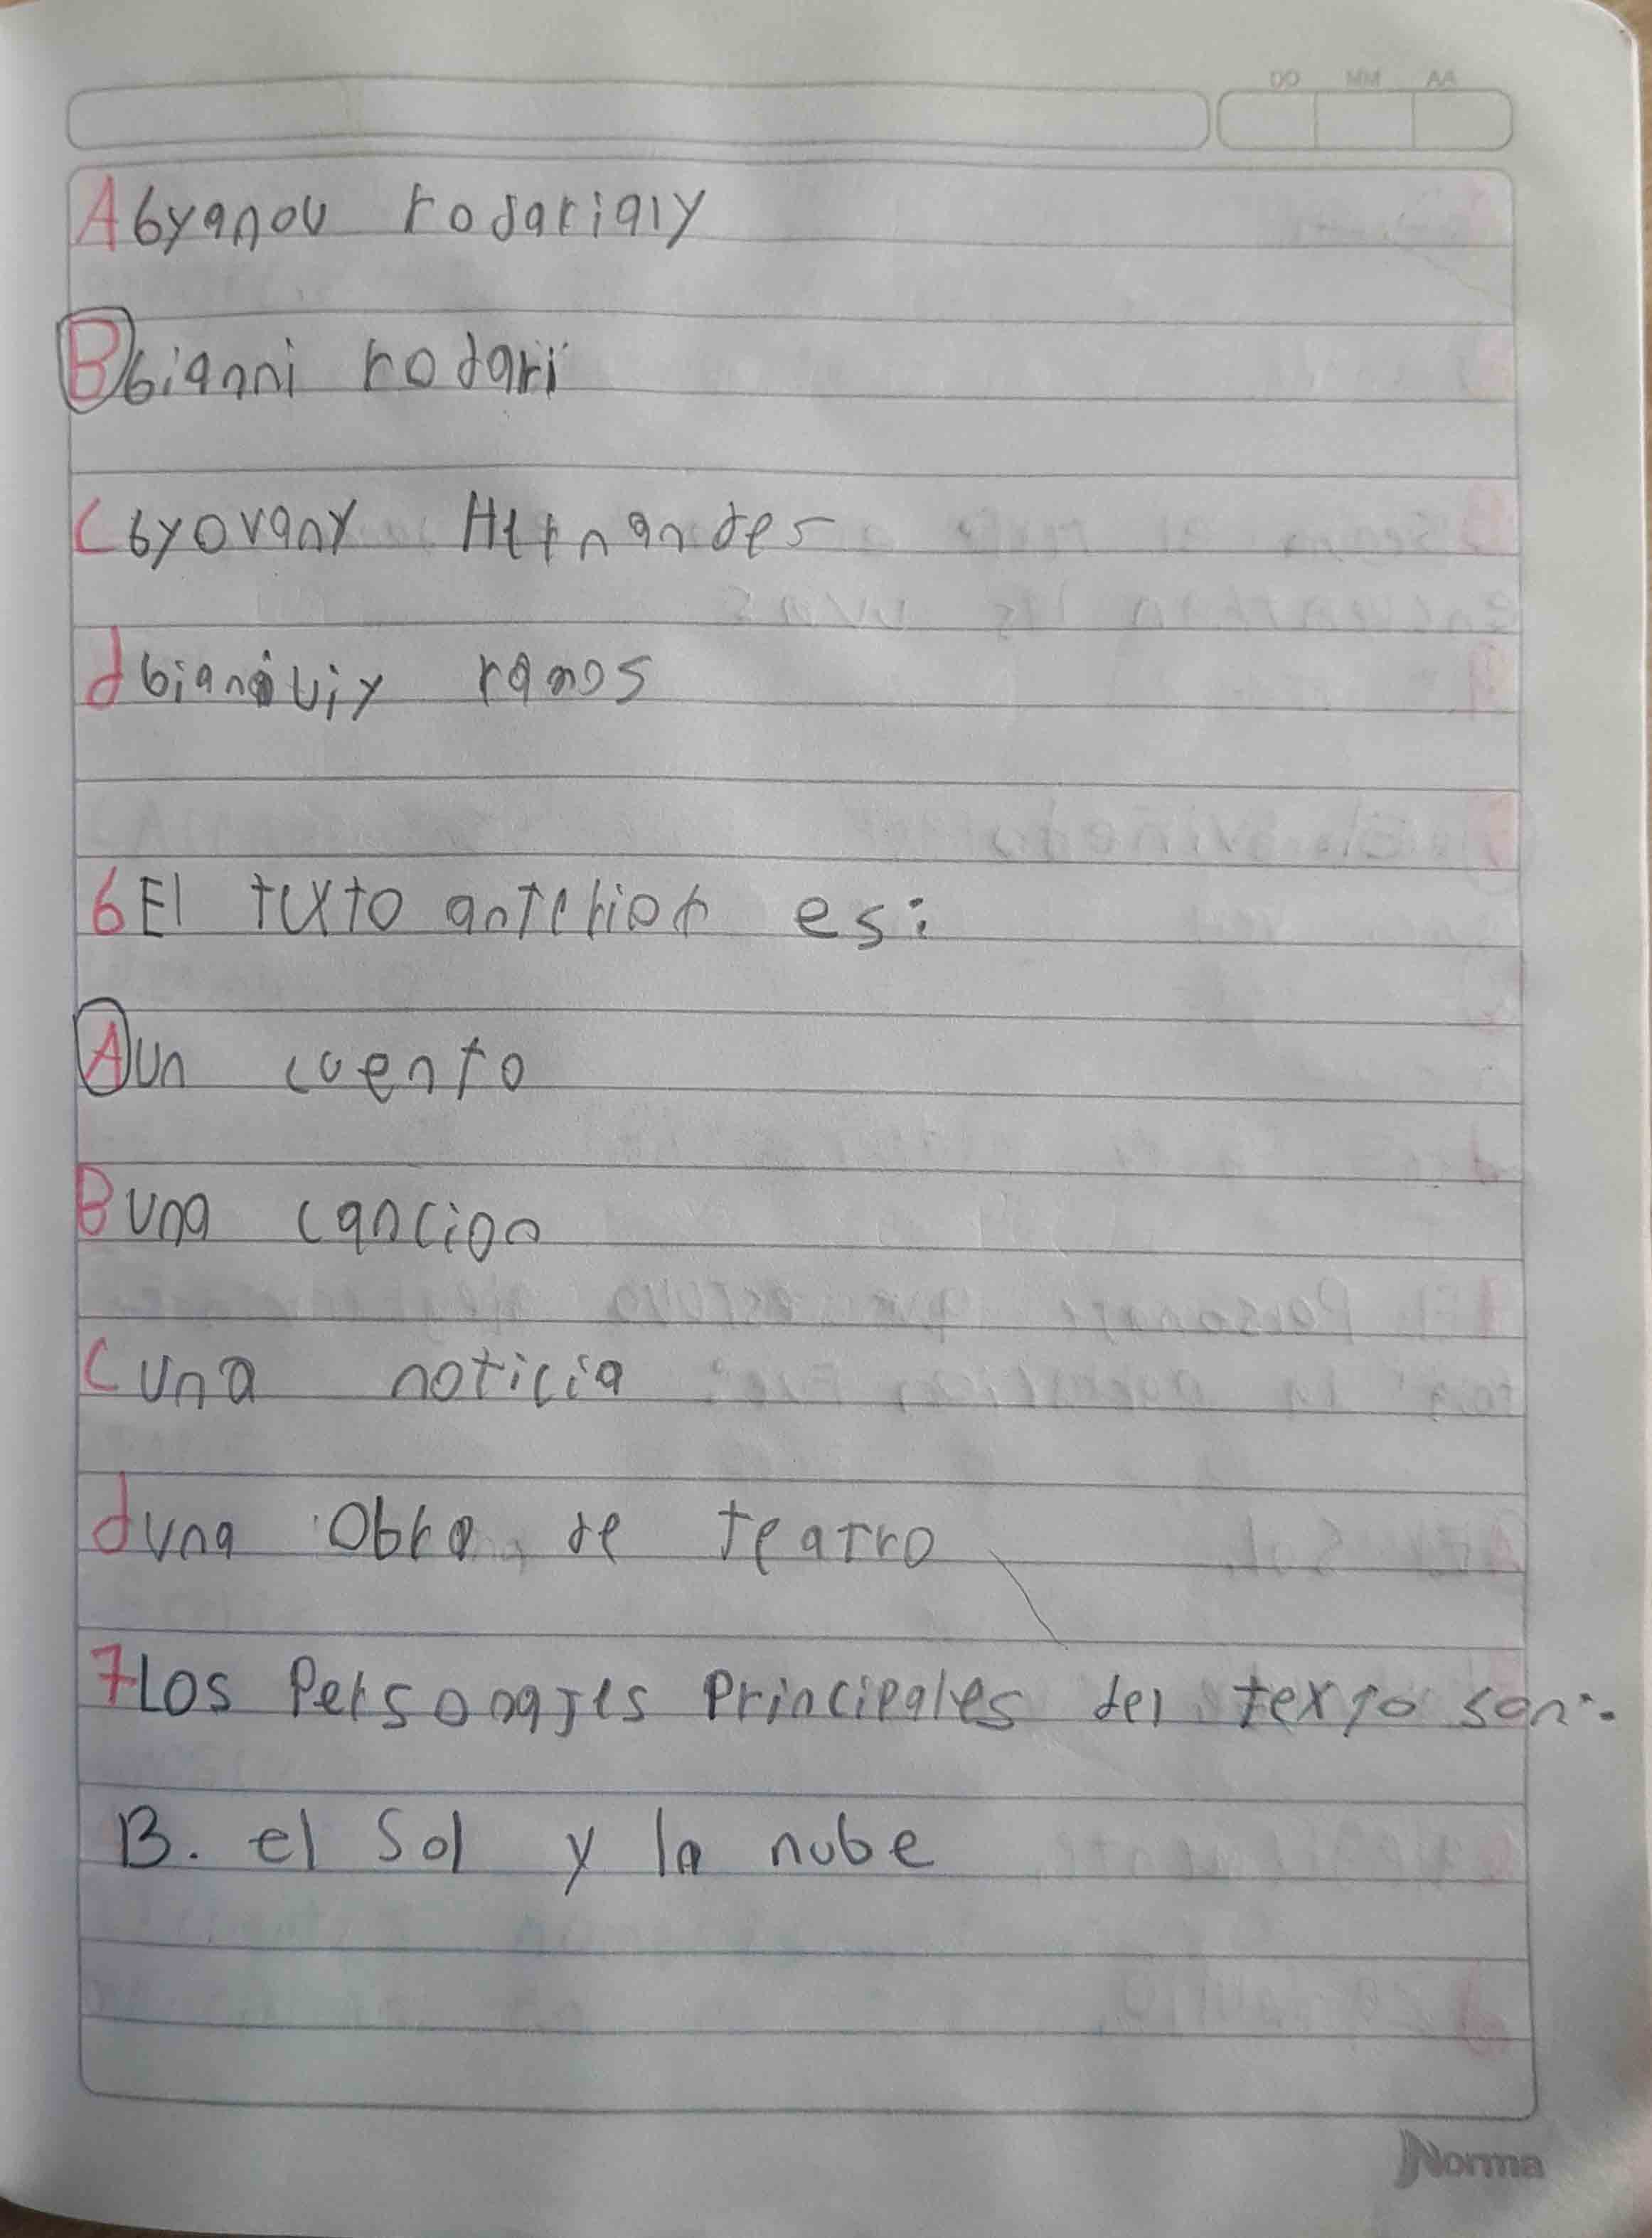 DD MM AA
A Gyanou rodarialy
B Gianni rodari
C Gyovany Hernandes
d ramos
6 El texto anterior es:
A un cuento
B una cancion
C una noticia
d una Obra de teatro
7 Los Personajes Principales del texto son:
B. el Sol y la nube
Norma